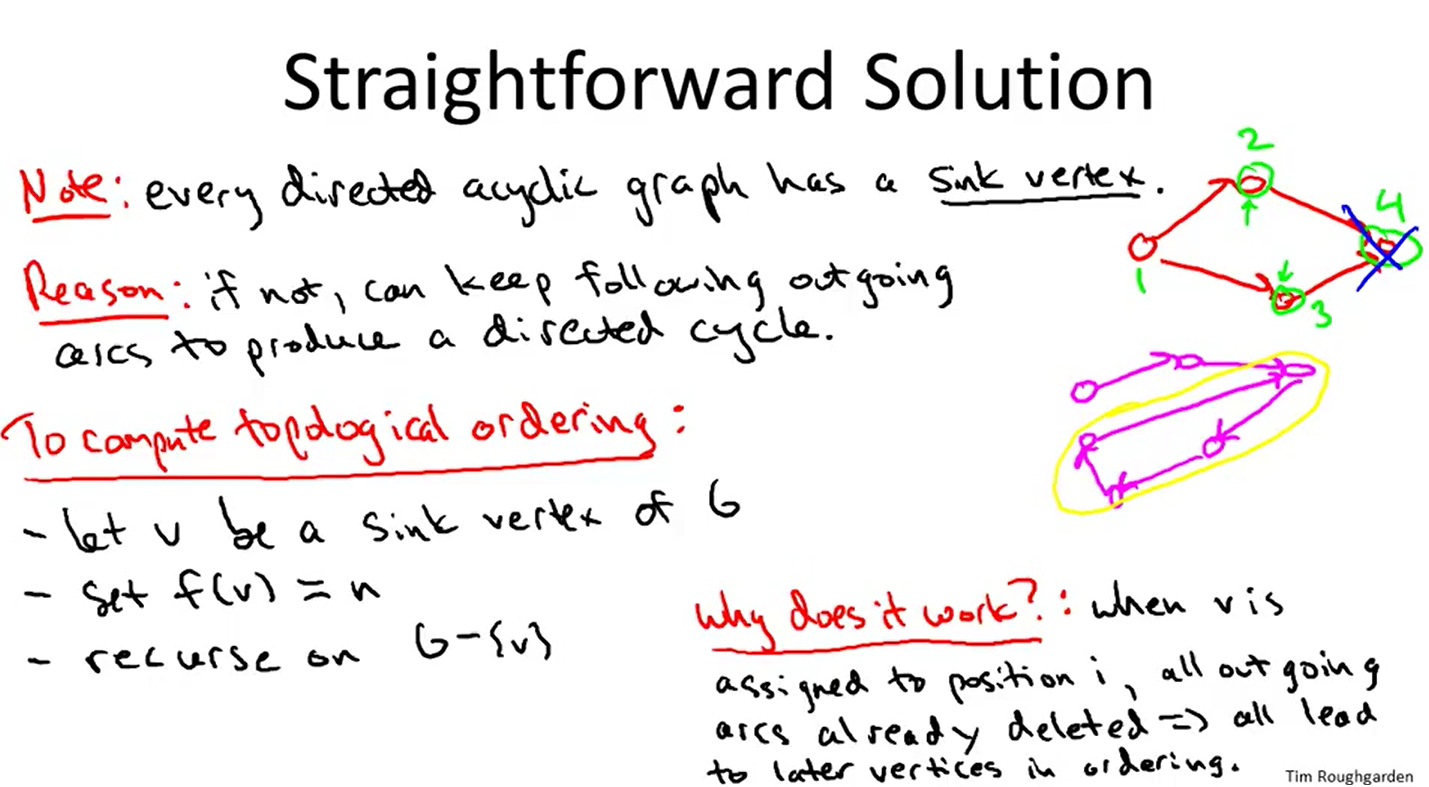 Straightforward Solution
Note: every directed acyclic graph has a sink vertex.
Reason: if not, can keep following outgoing
arcs to produce a directed cycle.
To compute topological ordering:
- let v be a sink vertex of G
- set f(v) = n
- recurse on G-{v}
2
4
1
3
Why does it work?: when v is
assigned to position i, all outgoing
arcs already deleted => all lead
to later vertices in ordering.
Tim Roughgarden